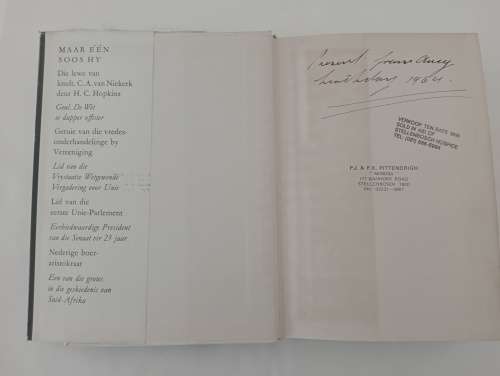 MAAR EÉN
SOOS HY
Die lewe van
kmdt. C.A. van Niekerk
deur H. C. Hopkins
Genl. De Wet
se dapper offisier
Getuie van die vredes-
onderhandelinge by
Vereeniging
Lid van die
Vrystaatse Wetgewende
Vergadering voor Unie
Lid van die
eerste Unie-Parlement
Eerbiedwaardige President
van die Senaat vir 23 jaar
Nederige boer-
aristokraat
Een van die grotes
in die geskiedenis van
Suid-Afrika
Present from
1964.
VERKOOP TEN BATE VAN
SOLD IN AID OF
STELLENBOSCH HOSPICE
P.J. & F.K. PITTENDRIGH
ROAD
STELLENBOSCH 7600